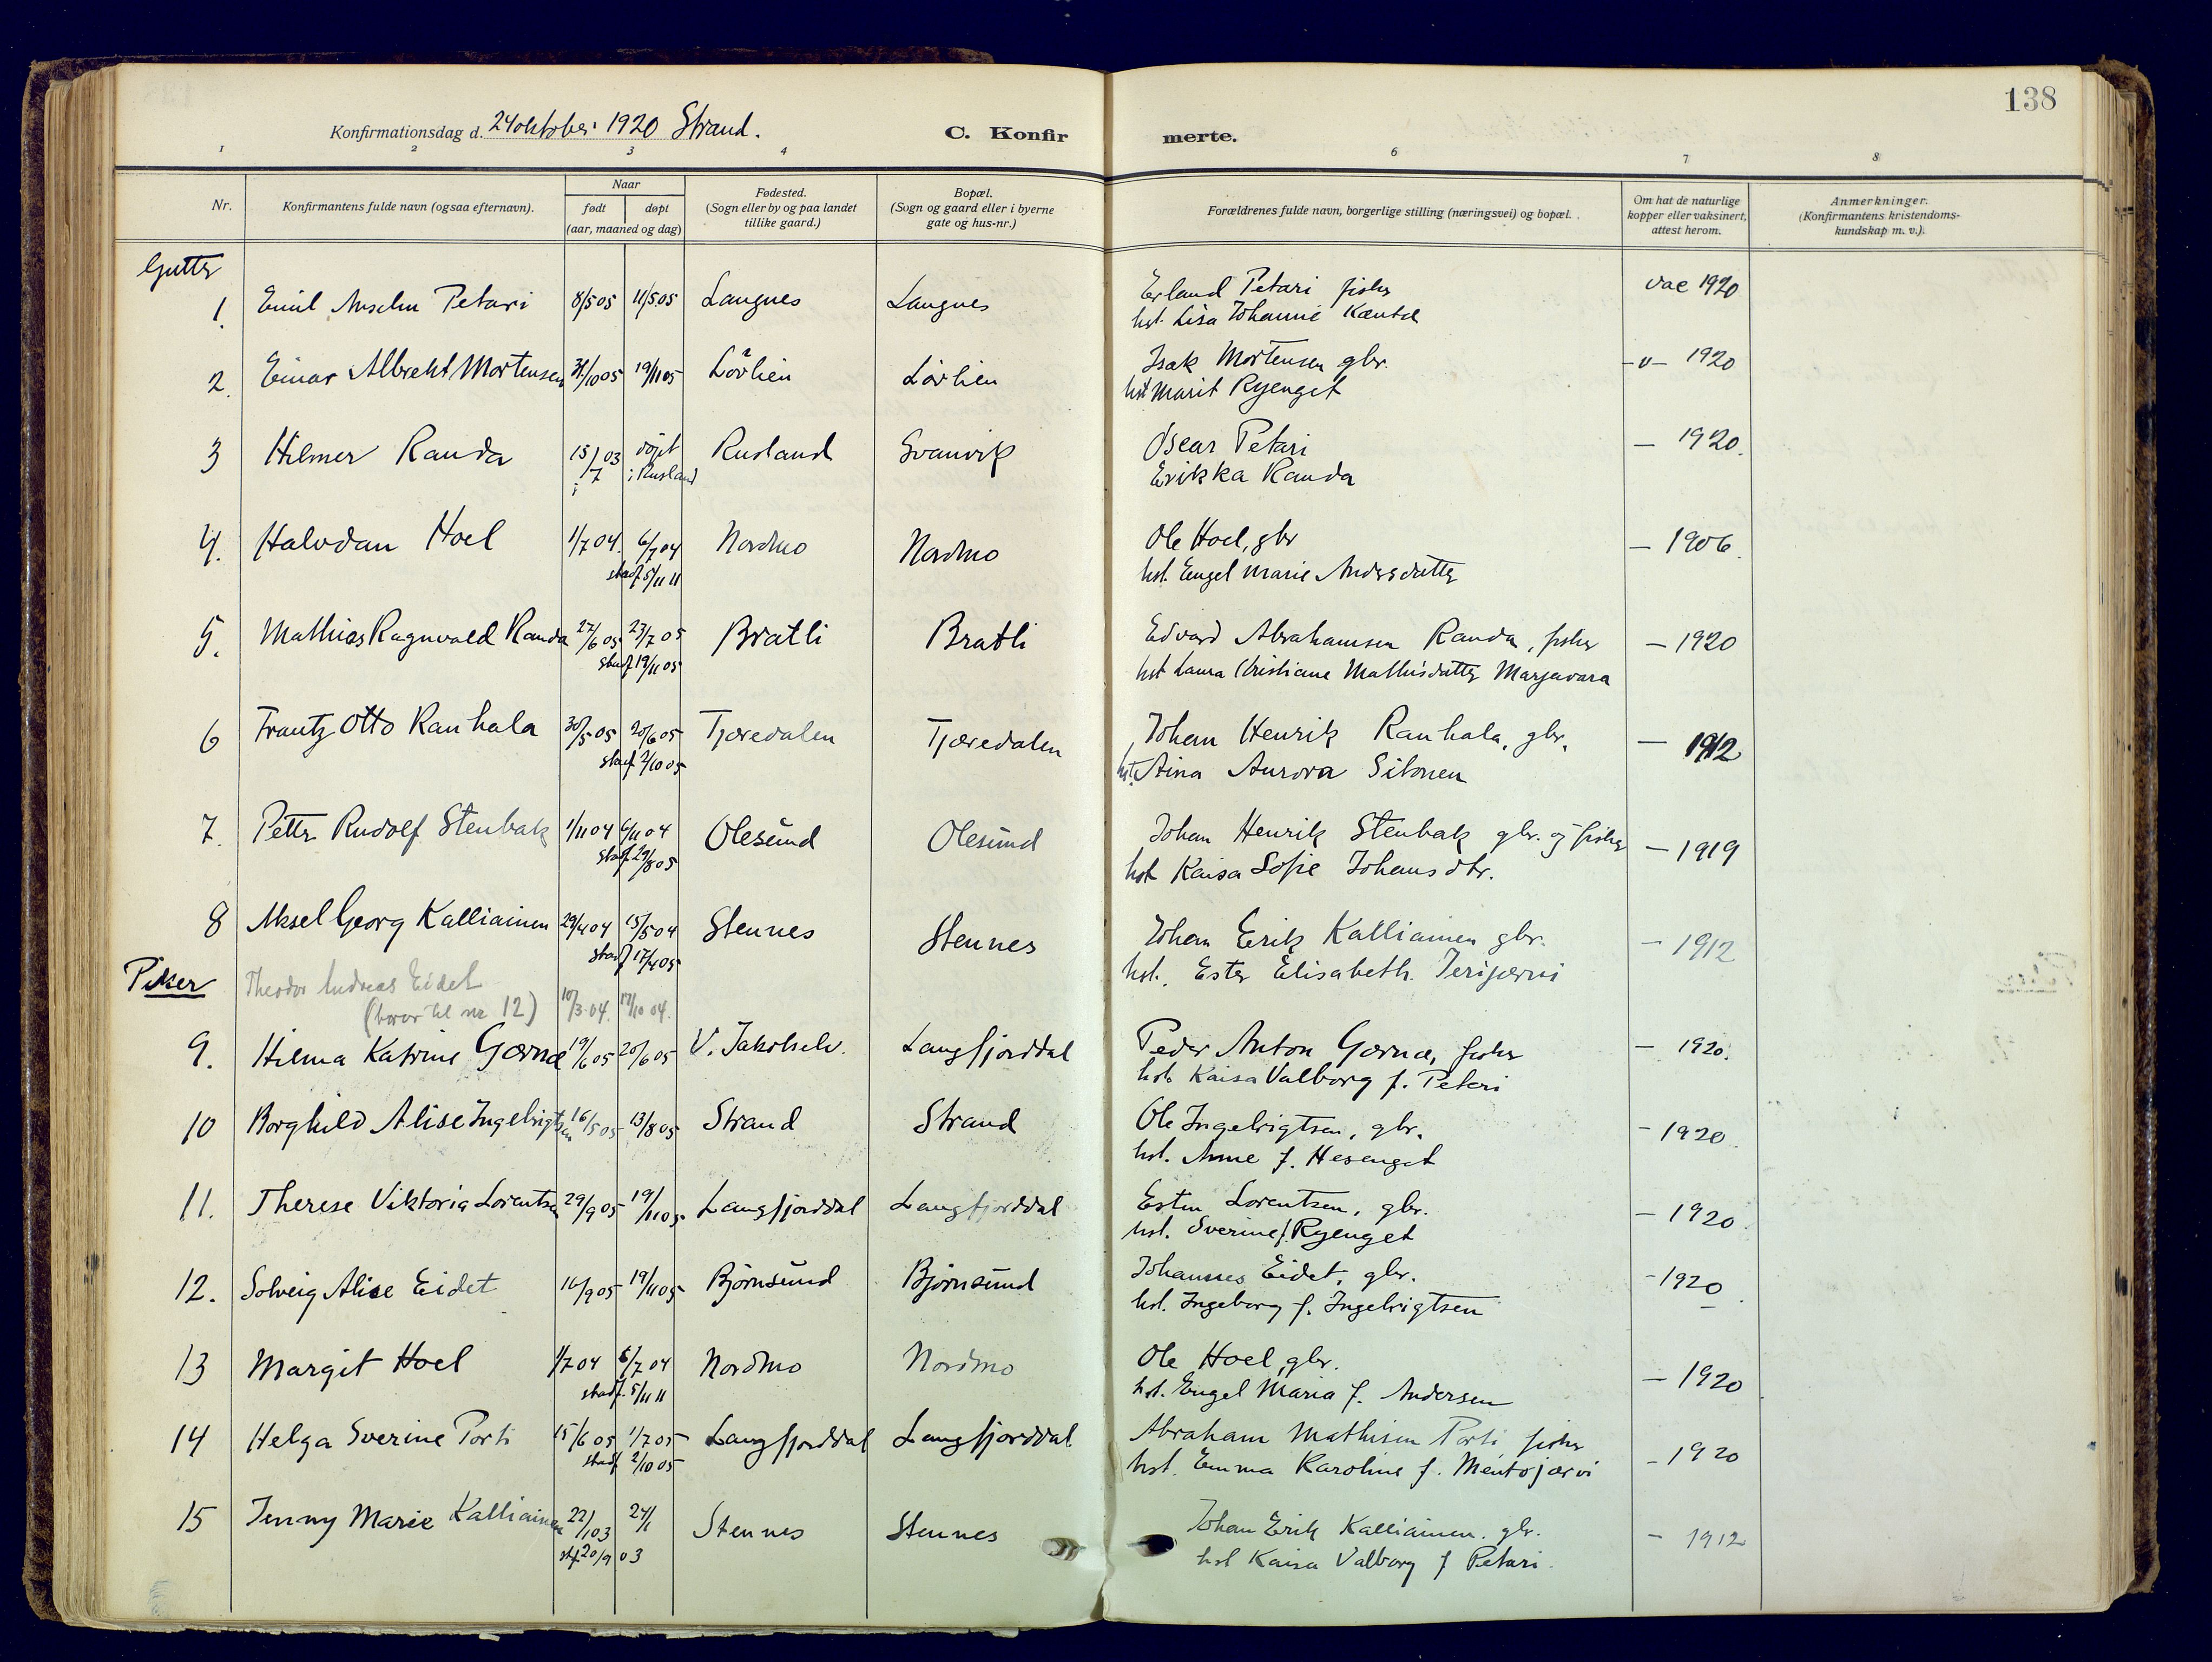 138
Konfirmationsdag d. 24 oktober 1920 Strand. C. Konfir merte.
1 2 3 4 6 7 8
Nr. Konfirmantens fulde navn (ogsaa efternavn). Naar født døpt (aar, maaned og dag) Fødested. (Sogn eller by og paa landet tillike gaard.) Bopæl. (Sogn og gaard eller i byerne gate og hus-nr.) Forældrenes fulde navn, borgerlige stilling (næringsvei) og bopæl. Om hat de naturlige kopper eller vaksinert, attest herom. Anmerkninger. (Konfirmantens kristendoms-kundskap m. v.).
Gutter
1. Emil Anselm Petari 8/5 05 11/5.05 Langnes Langnes Erland Petari fisker vac 1920
hst. Lisa Johanne
2. Einar Albrekt Mortensen 31/10 05 19/11 05 Lövlien Lövlien Isak Mortensen gbr. -v- 1920
hst Marit Ryenget
3 Hilmer Randa 15/7 03 döpt i Rusland Rusland Svanvik Oscar Petari — 1920.
Erikka Randa
4. Halvdan Hoel 1/7 04. 6/7 04 Nordmo Nordmo Ole Hoel, gbr — 1906.
stadf 5/11 11 hst. Engel Marie Andersdatter
5. Mathias Ragnvald Randa 27/6 05 23/7 05 Bratli Bratli Edvard Abrahamsen Randa, fisker — 1920
stadf 19/11 05 hst Laura Cristiane Mathisdatter Marjavara
6 Frantz Otto Rauhala 30/5 05 20/6 05 Tjæredalen Tjæredalen Johan Henrik Rauhala, gbr. — 1912
stadf 2/10 05 hst. Aina Aurora Sitonen
7. Petter Rudolf Stenbak 1/11 04 6/11 04 Olesund Olesund Johan Henrik Stenbak gbr. og fisker — 1919
stadf 29/8 05 hst Kaisa Sofie Johansdtr.
8 Aksel Georg Kalliainen 29/4 04 15/5 04 Stennes Stennes Johan Erik Kalliainen gbr. — 1912
stadf 17/4 05 hst. Ester Elisabeth Jerijærvi
Piker
Theodor Andreas Eidet
(hører til nr 12) 10/3.04. 17/10 04.
9. Hilma Katrine Gærnæ 19/6 05 20/6 05 V. Jakobselv. Langfjorddal Peder Anton Gærnæ, fisker — 1920.
hst. Kaisa Valborg f. Petari
10 Borghild Alise Ingebrigtsen 16/5 05 13/8 05 Strand Strand Ole Ingebrigtsen, gbr. — 1920.
hst. Anne f. Hesenget
11. Therese Viktoria Lorentsen 29/9 05 19/11 05 Langfjorddal Langfjorddal Esten Lorentsen, gbr. — 1920.
hst. Sverine f. Ryenget
12. Solveig Alise Eidet 16/9 05 19/11 05 Björnsund Björnsund Johannes Eidet, gbr. — 1920.
hst. Ingeborg f. Ingebrigtsen
13 Margit Hoel 1/7 04 6/7 04 Nordmo Nordmo Ole Hoel, gbr. — 1920
stadf. 5/11 11 hst. Engel Maria f. Andersen
14 Helga Sverine Porti 15/6 05 1/7 05 Langfjorddal Langfjorddal Abraham Mathisen Porti, fisker — 1920
stadf 2/10 05 hst. Emma Karoline f. Mentojærvi
15 Jenny Marie Kalliainen 22/1 03 24/1 Stennes Stennes Johan Erik Kalliainen. gbr. — 1912
stf 20/9 03 hst Kaisa Valborg f Petari.